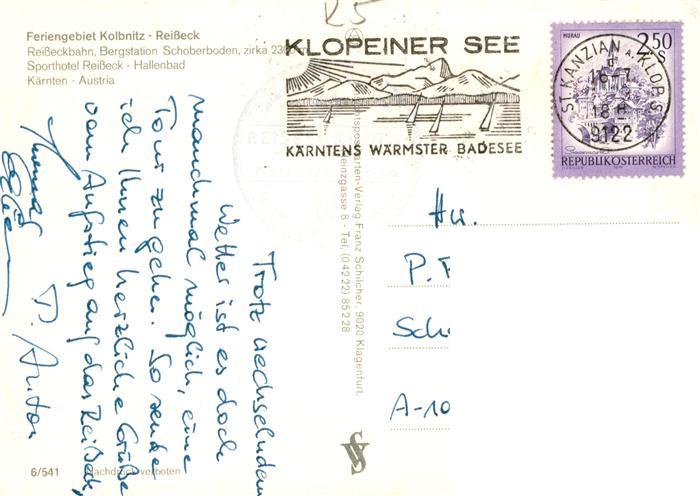 R5
Feriengebiet Kolbnitz - Reißeck
Reißeckbahn, Bergstation Schoberboden, zirka
Sporthotel Reißeck - Hallenbad
Kärnten - Austria
KLOPEINER SEE
KÄRNTENS WÄRMSTER BADESEE
MURAU
2.50
S
ST. KANZIAN A. KLOP. S.
18
9122
REPUBLIK ÖSTERREICH
Trotz wechselndem
Wetter ist es doch
manchmal möglich, eine
Tour zu gehen. So sende
ich Ihnen herzliche Grüße
vom Aufstieg auf das Reißeck,
P. Anton
Verlag Franz Schilcher, 9020 Klagenfurt,
gasse 8 - Tel. (0 42 22) 85 2 28
P.
Sch
A-10
6/541
Nachdruck verboten